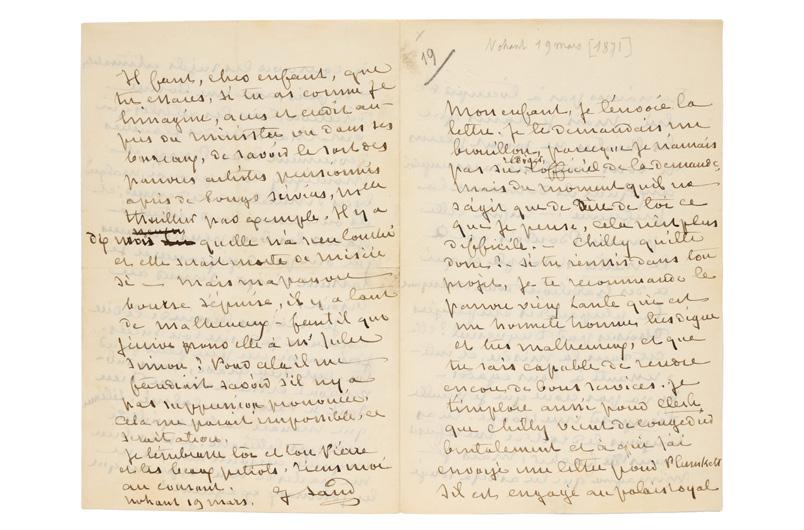 Nohant 19 mars [1871]
19/
Mon enfant, je t'envoie la
lettre. je te demandais un
brouillon, parceque je n'aurais
pas su l'officiel de la demande,
mais du moment qu'il ne
s'agit que de dire de toi ce
que je pense, cela n'est plus
difficile. — Chilly quitte
donc? — si tu réussis dans ton
projet, je te recommande le
pauvre vieux qui est
un honnête homme très digne
et très malheureux et que
tu sais capable de rendre
encore de bons services. je
t'implore aussi pour Clerh
que Chilly vient de congédier
brutalement et à qui j'ai
envoyé une lettre pour Plunkett
s'il est engagé au palais royal
Il faut, cher enfant, que
tu saches, si tu as comme je
l'imagine, accès et crédit au-
près du ministre ou dans ses
bureaux, de savoir le sort des
pauvres artistes pensionnés
après de longs services, Melle
Thuillier par exemple. Il y a
dix mois quelle n'a rien touché
et elle serait morte de misère
si — mais ma pauvre
bourse s'épuise, il y a tant
de malheureux — faut il que
j'écrive pour elle à Mr Jules
Simon? Pour cela il me
faudrait savoir s'il n'y a
pas suppression prononcée,
cela me parait impossible, ce
serait atroce.
Je t'embrasse toi et ton Pierre
et les beaux petiots. tiens moi
au courant.
nohant 19 mars. G Sand